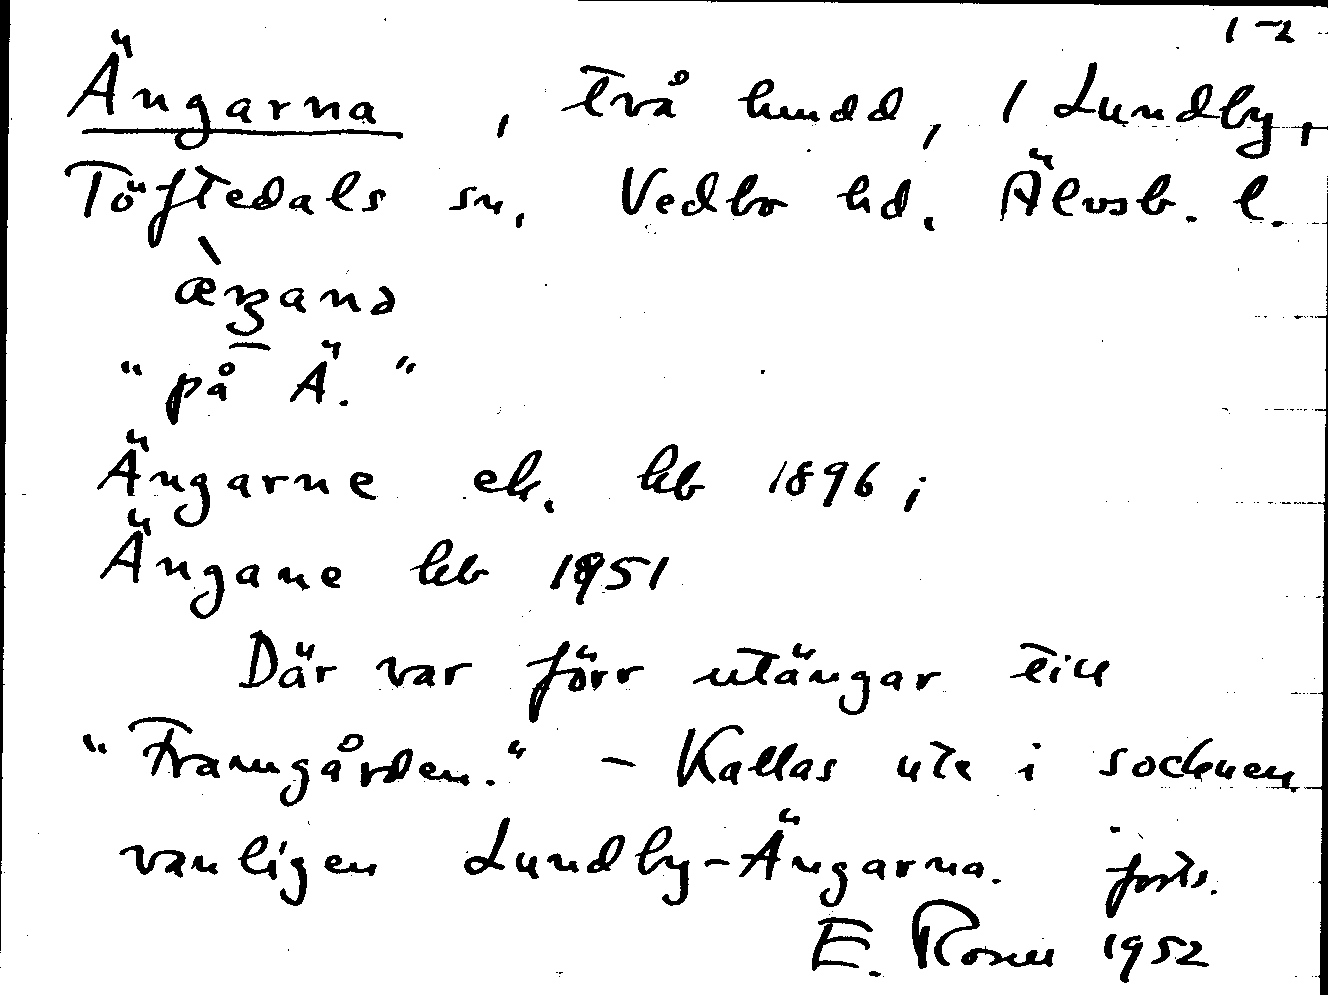 1-2
Ängarna, två hmdd, 1 Lundby,
Töftedals sn. Vedbo hd. Älvsb. l.
"på Ä."
Ängarne ek. kb 1896;
Ängane kb 1951
Där var förr utängar till
"Framgården." - Kallas ute i socknen
vanligen Lundby-Ängarna. forts.
E. Rosell 1952